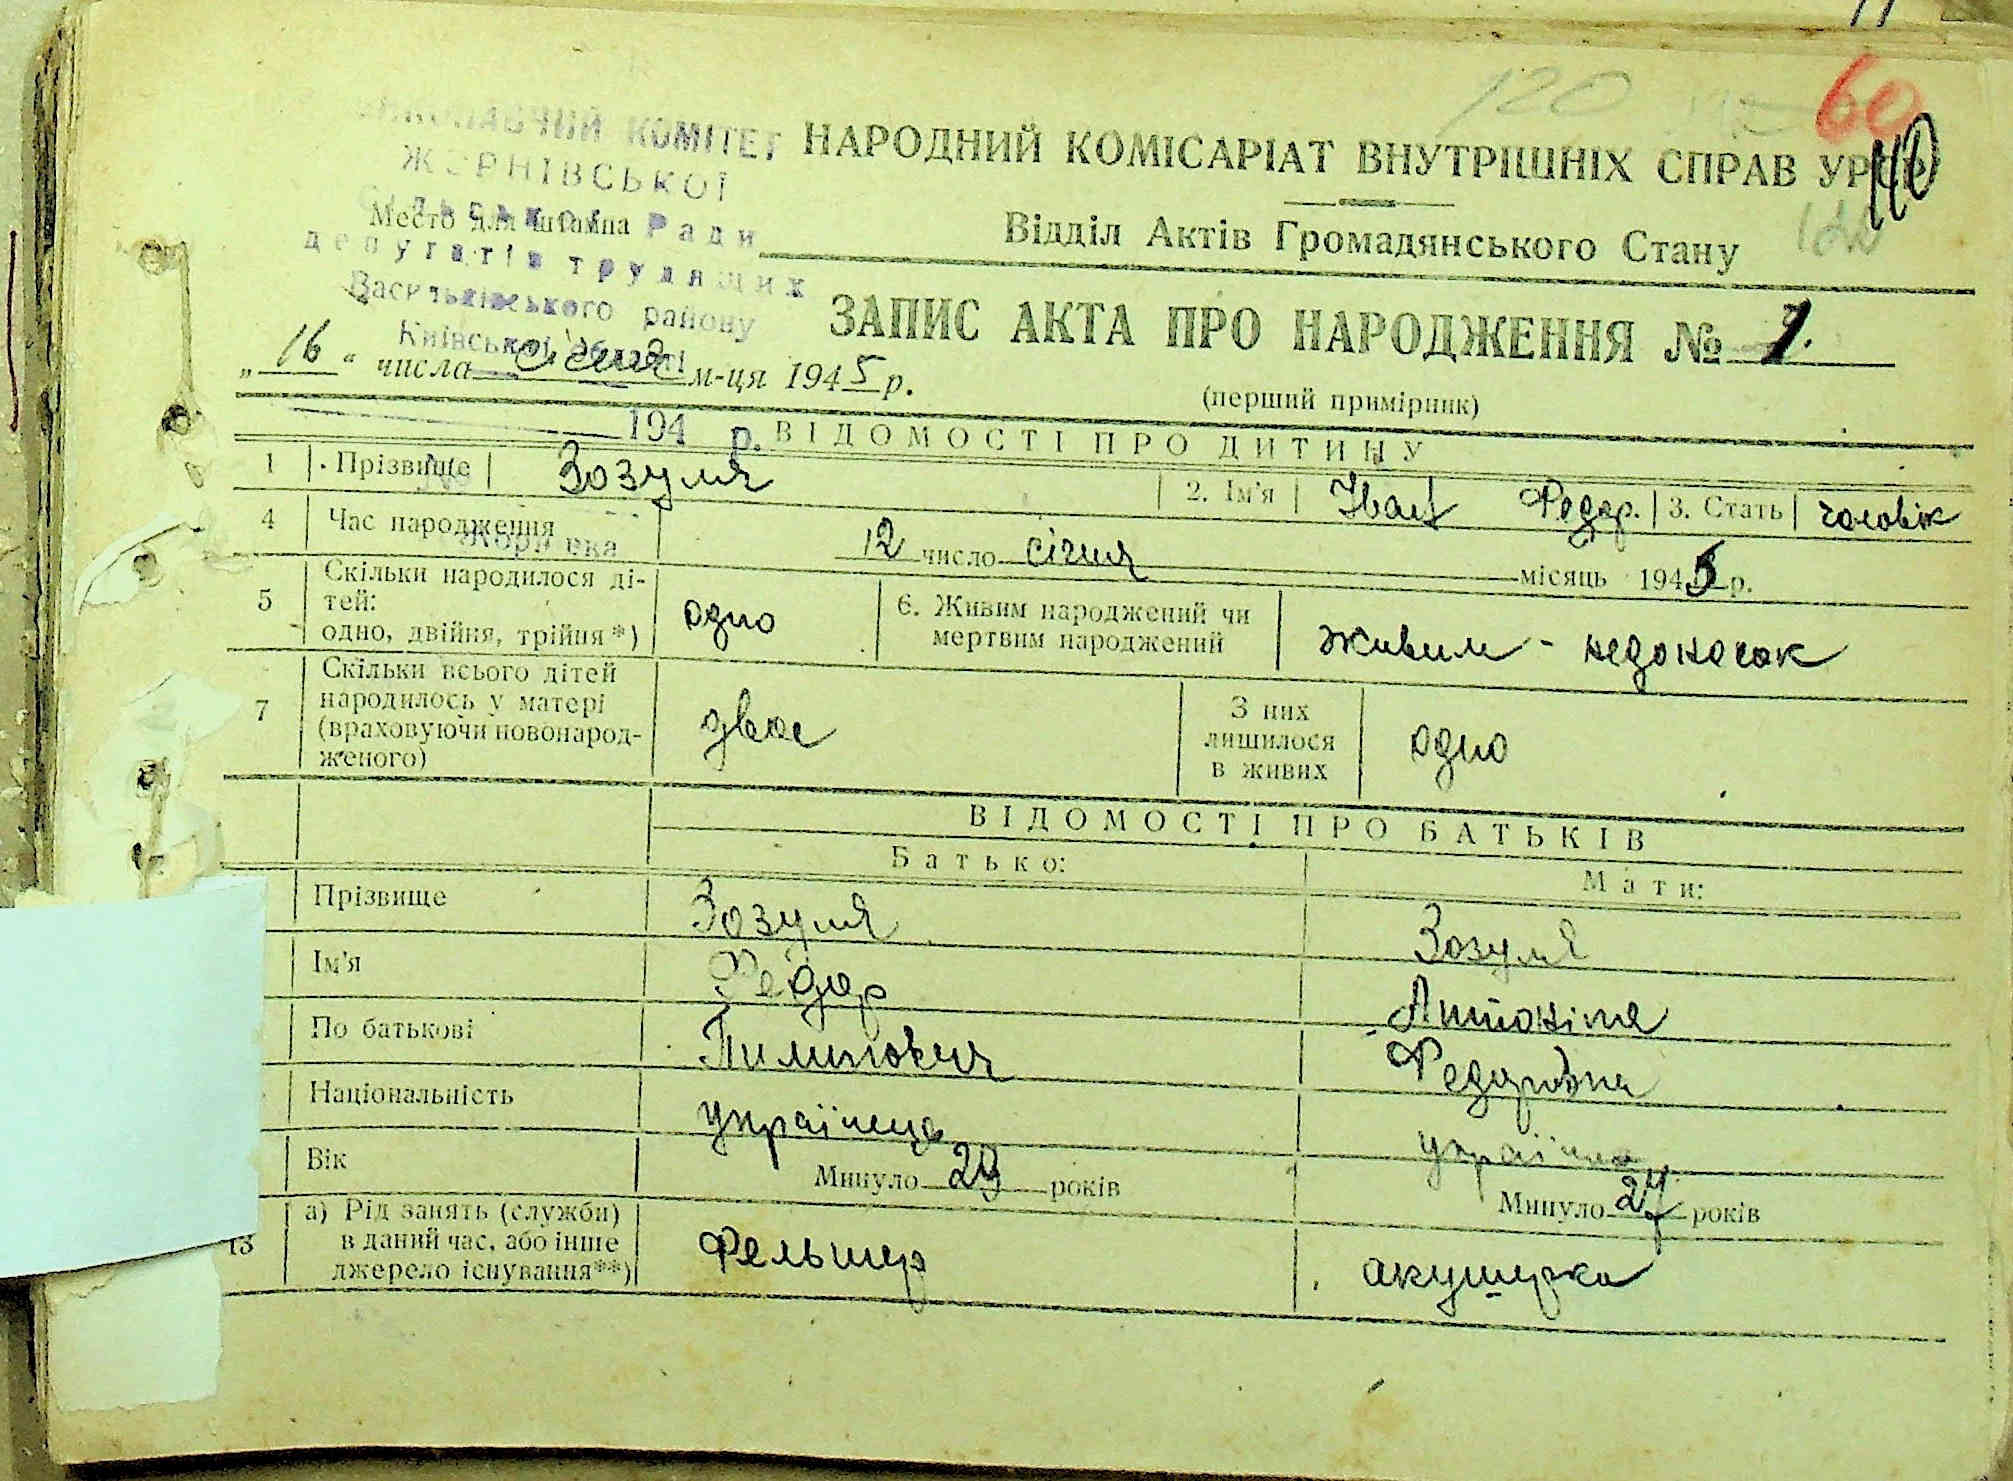 60
120
110
ВИКОНАВЧИЙ КОМІТЕТ
ЖОРНІВСЬКОЇ
Сільської Ради
депутатів трудящих
Васильківського району
Київської області
194 р.
Жорнівка
НАРОДНИЙ КОМІСАРІАТ ВНУТРІШНІХ СПРАВ УРСР
Место для штампа
Відділ Актів Громадянського Стану
ЗАПИС АКТА ПРО НАРОДЖЕННЯ № 1.
„16“ числа січня м-ця 1945 р.
(перший примірник)
ВІДОМОСТІ ПРО ДИТИНУ
1 Прізвище Зозуля 2. Ім'я Іван Федор. 3. Стать чоловік
4 Час народження 12 число січня місяць 1945 р.
5 Скільки народилося ді-
тей:
одно, двійня, трійня*) одно 6. Живим народжений чи
мертвим народжений живим - недоносок
7 Скільки всього дітей
народилось у матері
(враховуючи новонарод-
женого) двоє З них
лишилося
в живих одно
ВІДОМОСТІ ПРО БАТЬКІВ
Батько: Мати:
Прізвище Зозуля Зозуля
Ім'я Федор Антоніна
По батькові Пилипович Федоровна
Національність українець українка
Вік Минуло 29 років Минуло 24 років
13 а) Рід занять (служби)
в даний час, або інше
джерело існування**) Фельшер акушерка